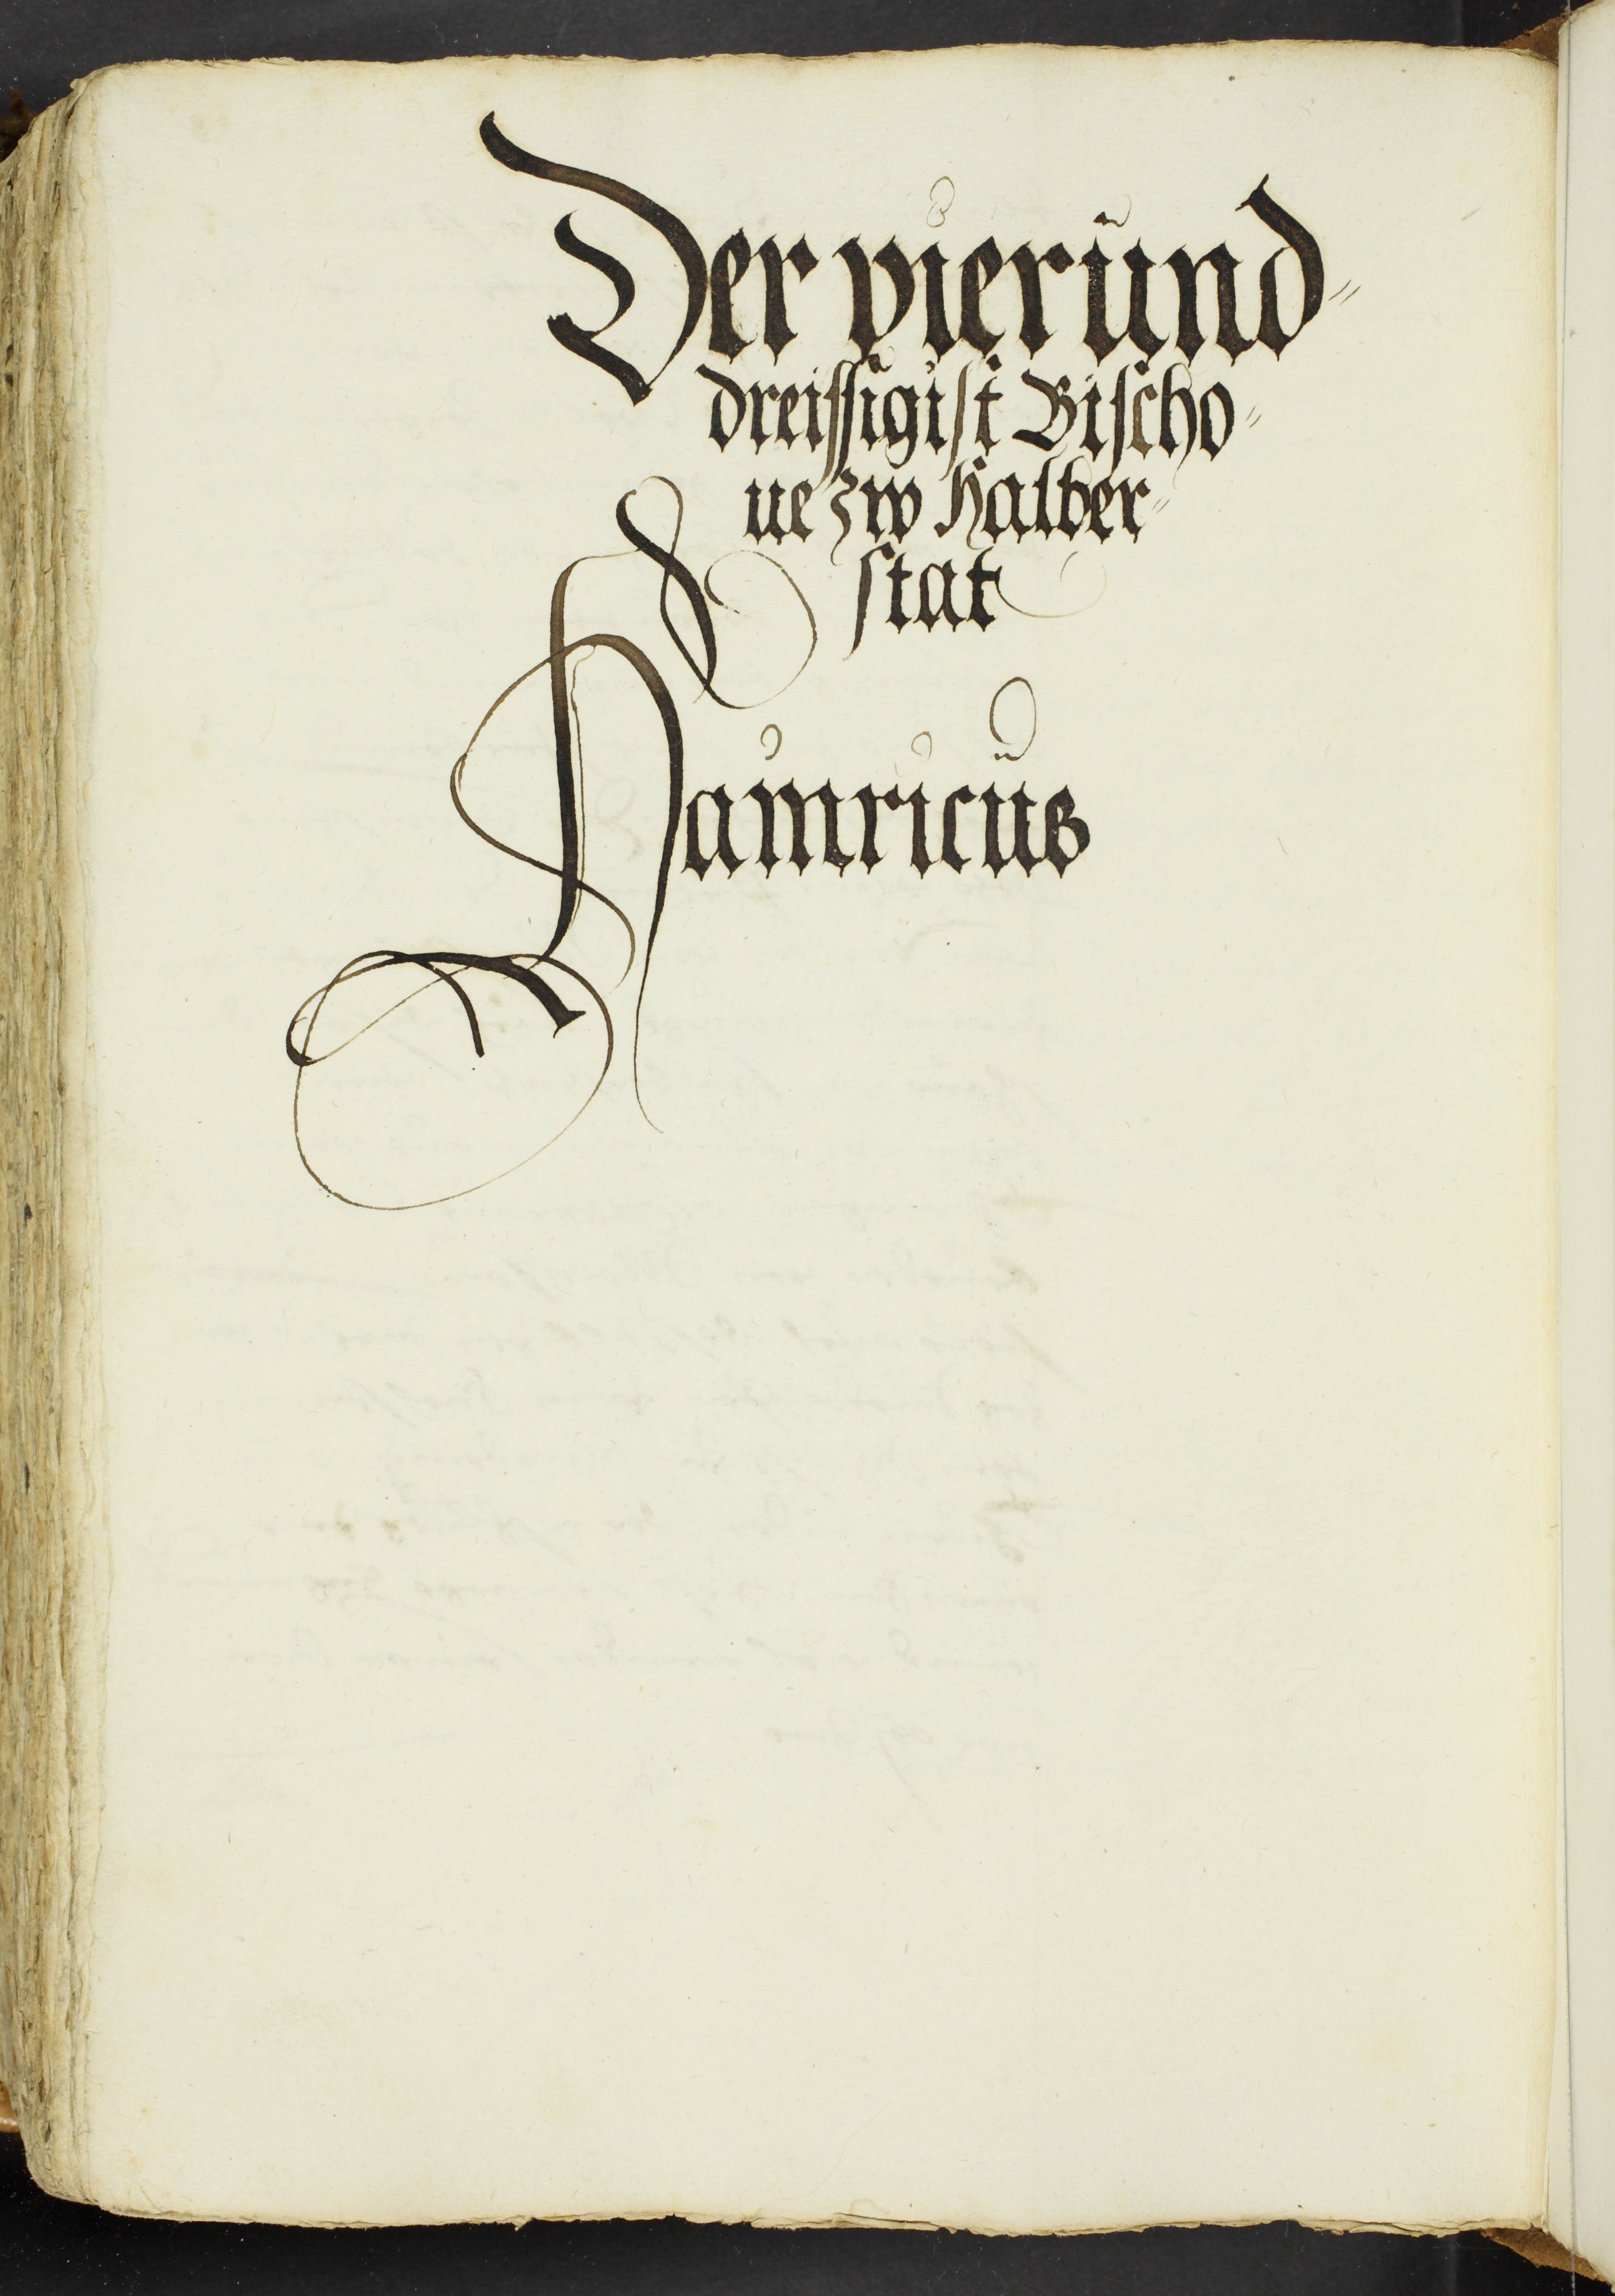 Der vierund=
dreissigist Bischo=
ue zw Halber=
stat
Hainricus